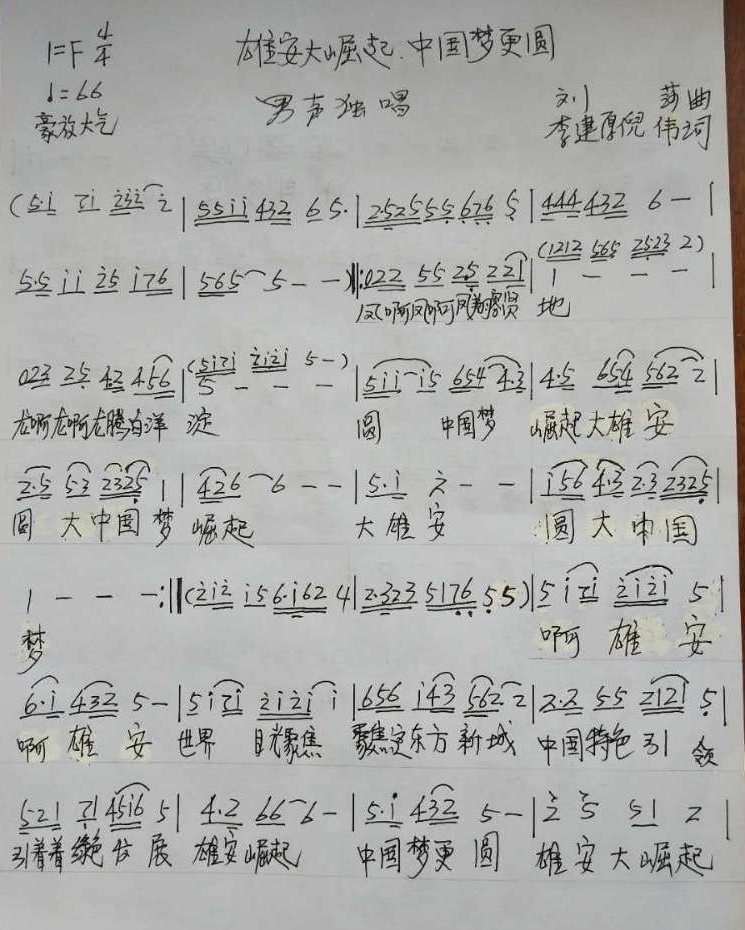 1=F 4/4 雄安大崛起.中国梦更圆
♩=66 男声独唱 刘 莎曲
豪放大气 李建厚 倪伟词
(5·i 7i 232 2 | 55ii 432 6 5· | 2525 55 676 5 | 444 432 6 - |
5·5 ii 25 i76 | 565 5 - - )|: 022 55 25 221 | (1212 565 2523 2)
1 - - - |
凤啊凤啊凤翔容贤 地
023 25 42 456 | (5i7i 2i2i 5 -)
5 - - - | 5ii i5 654 4·3 | 4·5 654 562 2 |
龙啊龙啊龙腾白洋 淀 圆 中国梦 崛起大雄安
2·5 53 2325 1 | 426 6 - - | 5·i 2 - - | i56 4·3 2·3 2325 |
圆 大中国梦 崛起 大雄安 圆大中国
1 - - - :|| (2i2 i5 6·i62 4 | 2·323 5176 5 5) | 5 i7i 2i2i 5 |
梦 啊 雄 安
6·i 432 5 - | 5i7i 2i2i i | 656 i43 562 2 | 2·2 55 2121 5 |
啊 雄 安 世界 目光聚焦 聚焦定东方新城 中国特色引 领
521 71 4516 5 | 4·2 66 6 - | 5·i 432 5 - | 2 5 51 2 |
引着着绿色发展 雄安崛起 中国梦更 圆 雄安大崛起